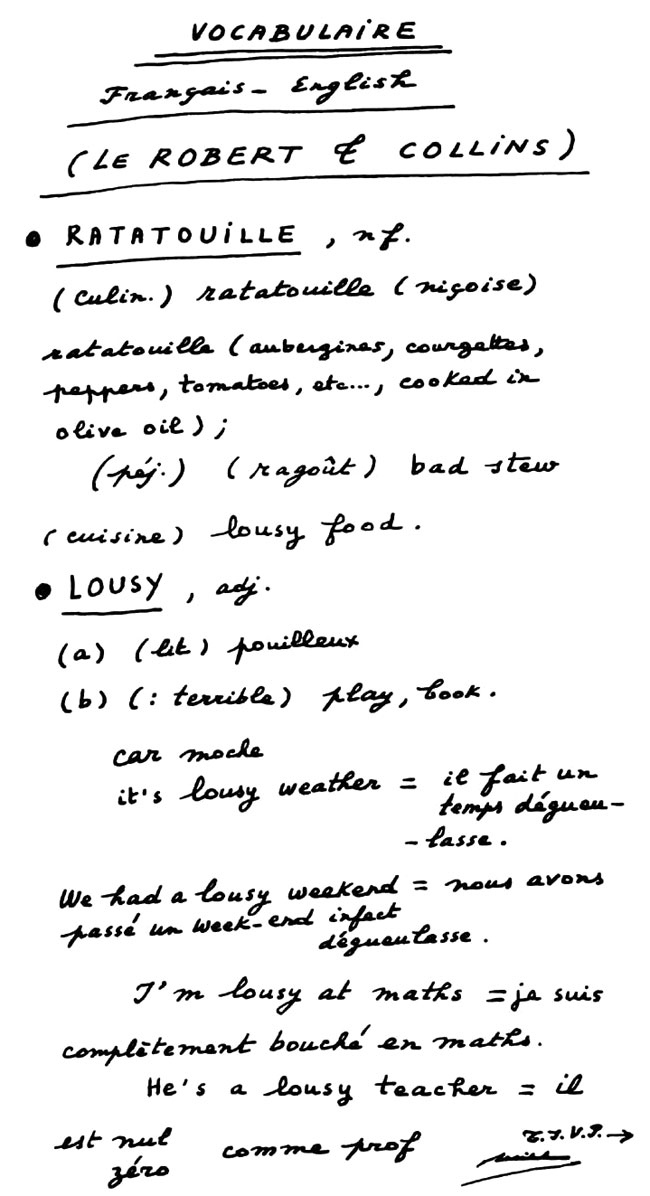 VOCABULAIRE
Français - English
(LE ROBERT & COLLINS)
• RATATOUILLE, nf.
(culin.) ratatouille (niçoise)
ratatouille (aubergines, courgettes,
peppers, tomatoes, etc..., cooked in
olive oil);
(péj.) (ragoût) bad stew
(cuisine) lousy food.
• LOUSY, adj.
(a) (lit) pouilleux
(b) (: terrible) play, book.
car moche
it's lousy weather = il fait un
temps dégueu-
-lasse.
We had a lousy weekend = nous avons
passé un week-end infect
dégueulasse.
I'm lousy at maths = je suis
complètement bouché en maths.
He's a lousy teacher = il
est nul comme prof
zéro
T.S.V.P. →